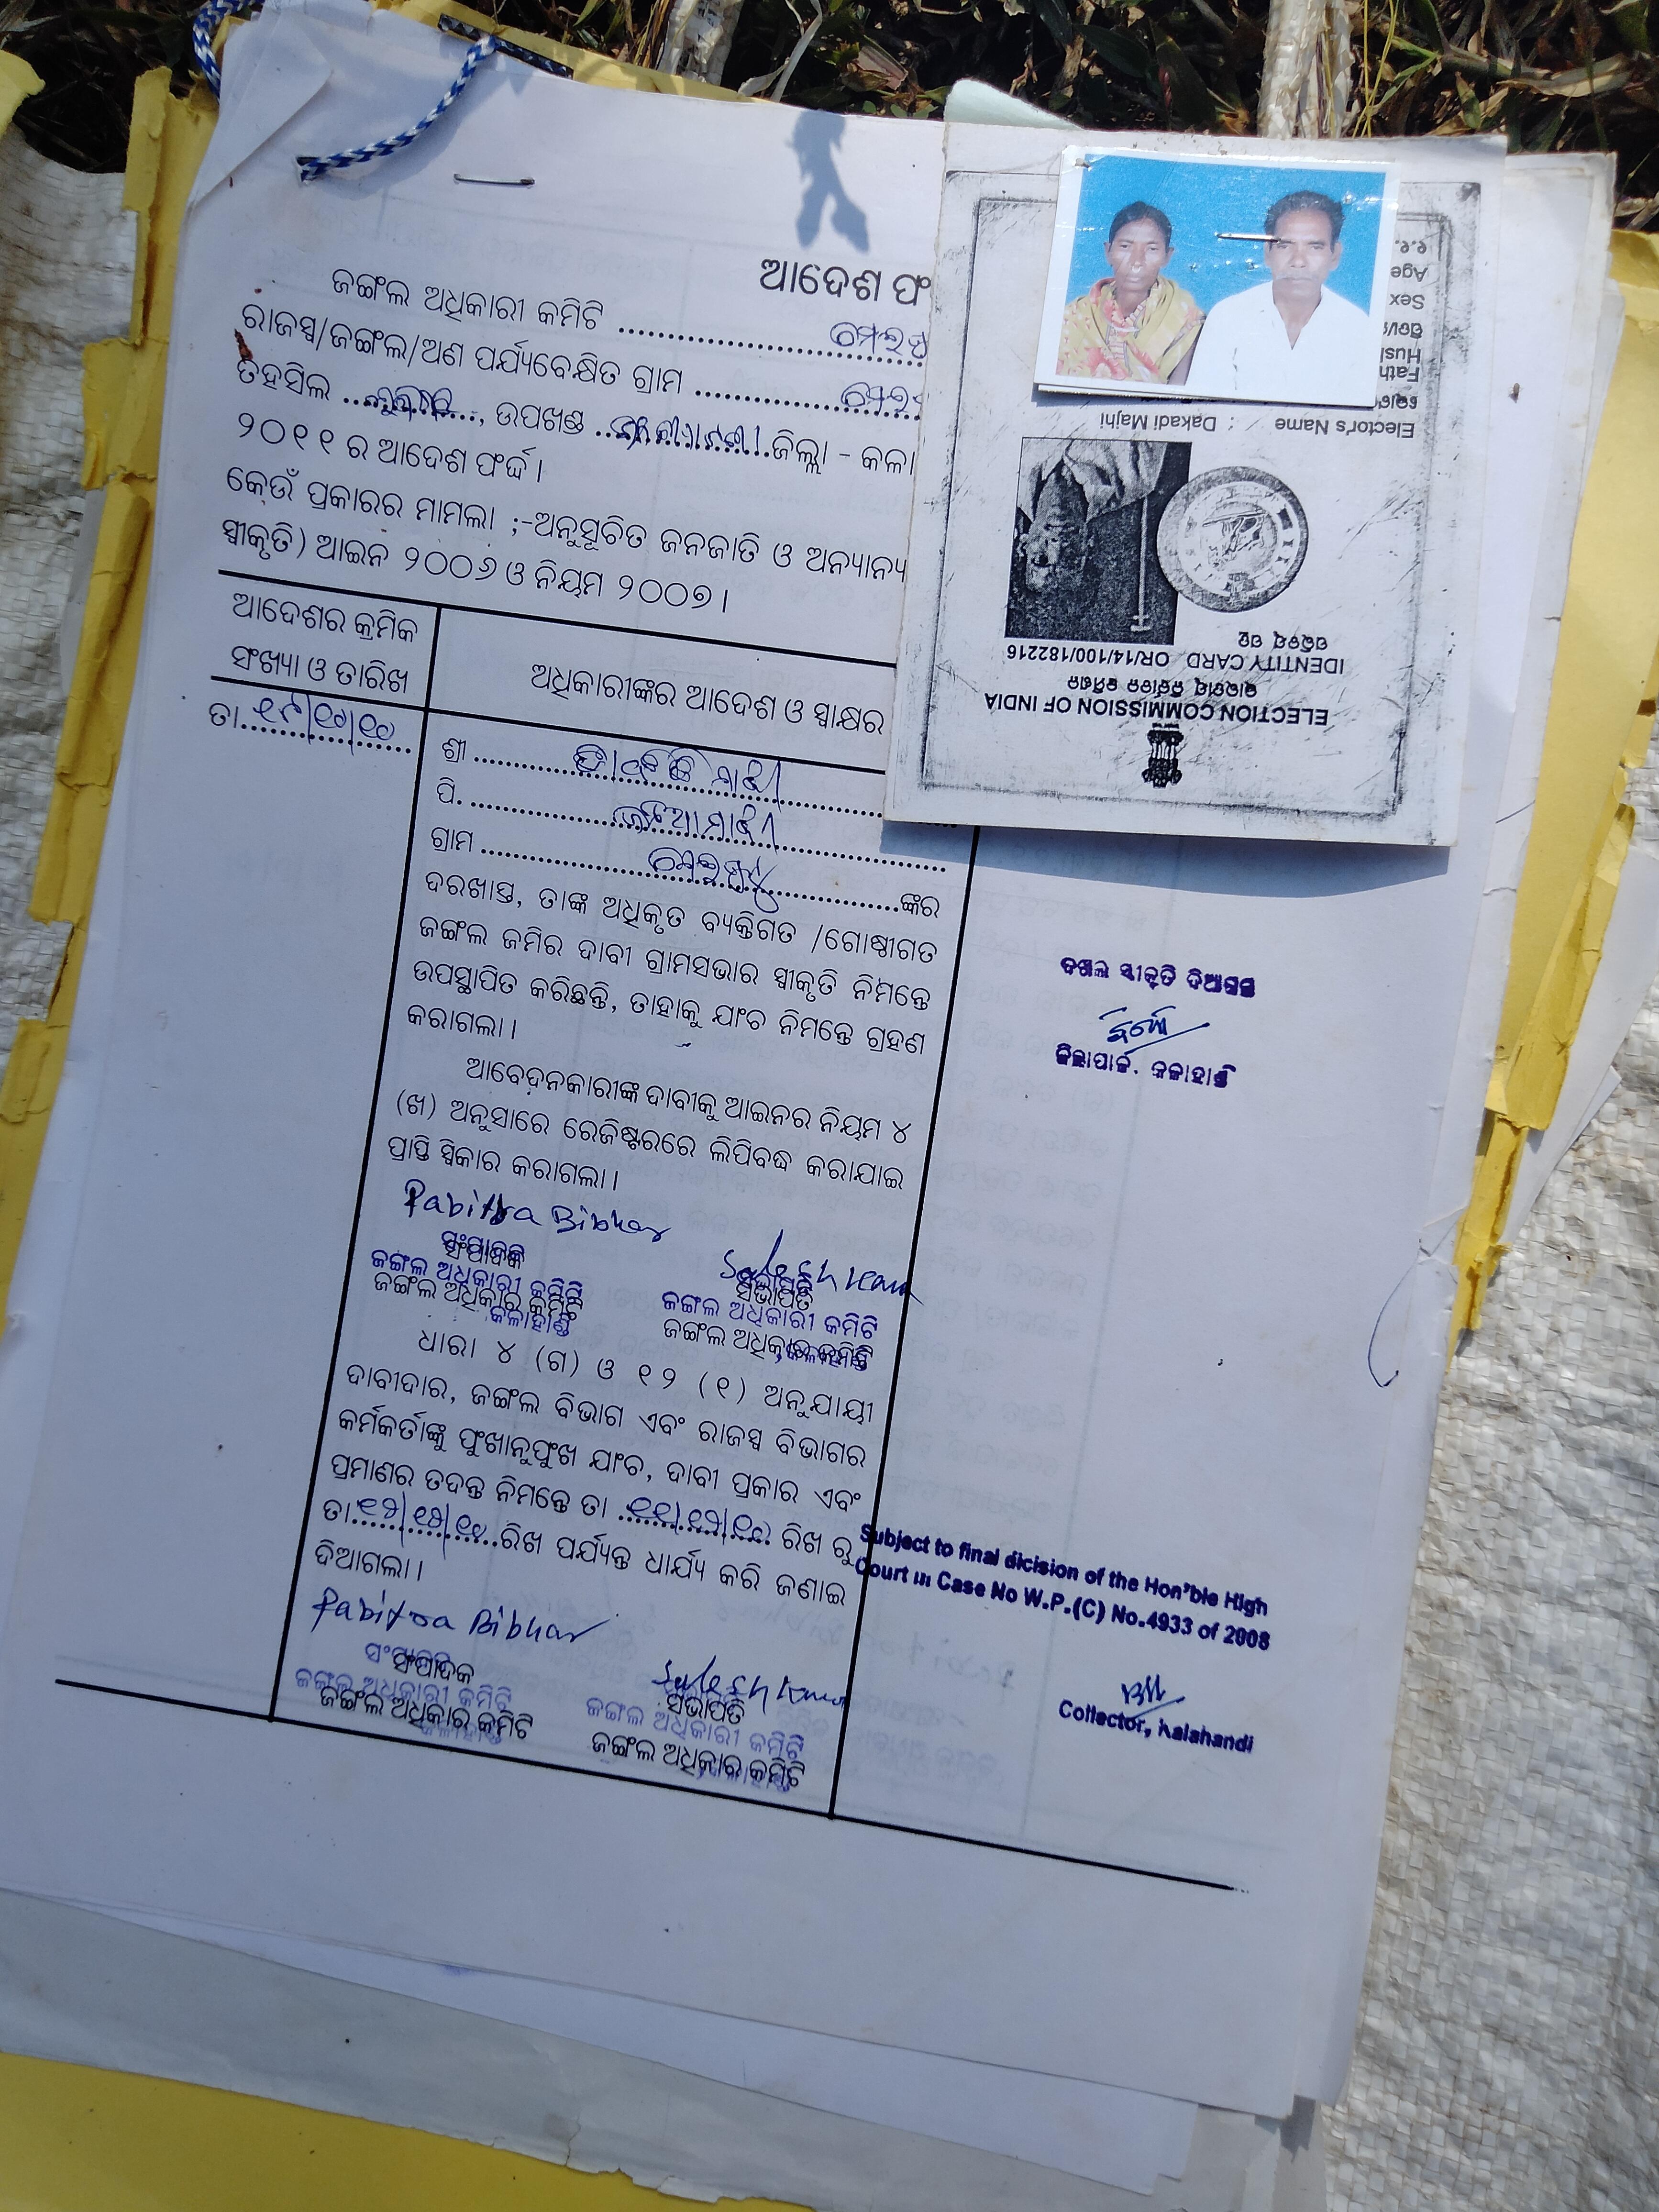 ଆଦେଶ ଫ
ଜଙ୍ଗଲ ଅଧିକାରୀ କମିଟି
ରାଜସ୍ୱ/ଜଙ୍ଗଲ/ଅଣ ପର୍ଯ୍ୟବେକ୍ଷିତ ଗ୍ରାମ
ତହସିଲ , ଉପଖଣ୍ଡ ଜିଲ୍ଲା - କଳା
୨୦୧୧ ର ଆଦେଶ ଫର୍ଦ୍ଦ।
କେଉଁ ପ୍ରକାରର ମାମଲା ;-ଅନୁସୂଚିତ ଜନଜାତି ଓ ଅନ୍ୟାନ୍ୟ
ସ୍ୱୀକୃତି) ଆଇନ ୨୦୦୬ ଓ ନିୟମ ୨୦୦୭।
ଆଦେଶର କ୍ରମିକ
ସଂଖ୍ୟା ଓ ତାରିଖ
ଅଧିକାରୀଙ୍କର ଆଦେଶ ଓ ସ୍ୱାକ୍ଷର
ତା.୧୯/୧୦/୧୦
ଶ୍ରୀ ମାଝୀ
ପି. ମାଝୀ
ଗ୍ରାମ ଙ୍କର
ଦରଖାସ୍ତ, ତାଙ୍କ ଅଧିକୃତ ବ୍ୟକ୍ତିଗତ /ଗୋଷ୍ଠୀଗତ
ଜଙ୍ଗଲ ଜମିର ଦାବୀ ଗ୍ରାମସଭାର ସ୍ୱୀକୃତି ନିମନ୍ତେ
ଉପସ୍ଥାପିତ କରିଛନ୍ତି, ତାହାକୁ ଯାଂଚ ନିମନ୍ତେ ଗ୍ରହଣ
କରାଗଲା।
ଆବେଦନକାରୀଙ୍କ ଦାବୀକୁ ଆଇନର ନିୟମ ୪
(ଖ) ଅନୁସାରେ ରେଜିଷ୍ଟରରେ ଲିପିବଦ୍ଧ କରାଯାଇ
ପ୍ରାପ୍ତି ସ୍ୱିକାର କରାଗଲା।
Pabitra Bibhar
ସଂପାଦକ
ଜଙ୍ଗଲ ଅଧିକାରୀ କମିଟି
ଜଙ୍ଗଲ ଅଧିକାର କମିଟି
କଳାହାଣ୍ଡି
ସଭାପତି
ଜଙ୍ଗଲ ଅଧିକାରୀ କମିଟି
ଜଙ୍ଗଲ ଅଧିକାର କମିଟି
ଧାରା ୪ (ଗ) ଓ ୧୨ (୧) ଅନୁଯାୟୀ
ଦାବୀଦାର, ଜଙ୍ଗଲ ବିଭାଗ ଏବଂ ରାଜସ୍ୱ ବିଭାଗର
କର୍ମକର୍ତାଙ୍କୁ ପୁଂଖାନୁପୁଂଖ ଯାଂଚ, ଦାବୀ ପ୍ରକାର ଏବଂ
ପ୍ରମାଣର ତଦନ୍ତ ନିମନ୍ତେ ତା ୧୧/୧୨/୧୦ ରିଖ ରୁ
ତା.୧୨/୧୨/୧୦ ରିଖ ପର୍ଯ୍ୟନ୍ତ ଧାର୍ଯ୍ୟ କରି ଜଣାଇ
ଦିଆଗଲା।
Pabitra Bibhar
ସଂପାଦକ
ଜଙ୍ଗଲ ଅଧିକାରୀ କମିଟି
ଜଙ୍ଗଲ ଅଧିକାର କମିଟି
କଳାହାଣ୍ଡି
ସଭାପତି
ଜଙ୍ଗଲ ଅଧିକାରୀ କମିଟି
ଜଙ୍ଗଲ ଅଧିକାର କମିଟି
ଦଖଲ ସ୍ୱୀକୃତି ଦିଆଗଲା
ଜିଲ୍ଲାପାଳ, କଳାହାଣ୍ଡି
Subject to final dicision of the Hon'ble High
Court in Case No W.P.(C) No.4933 of 2008
Collector, Kalahandi
ELECTION COMMISSION OF INDIA
ଭାରତର ନିର୍ବାଚନ କମିଶନ
IDENTITY CARD OR/14/100/182216
ପରିଚୟ ପତ୍ର
Elector's Name : Dakadi Majhi
Fath
Hus
Sex
Age